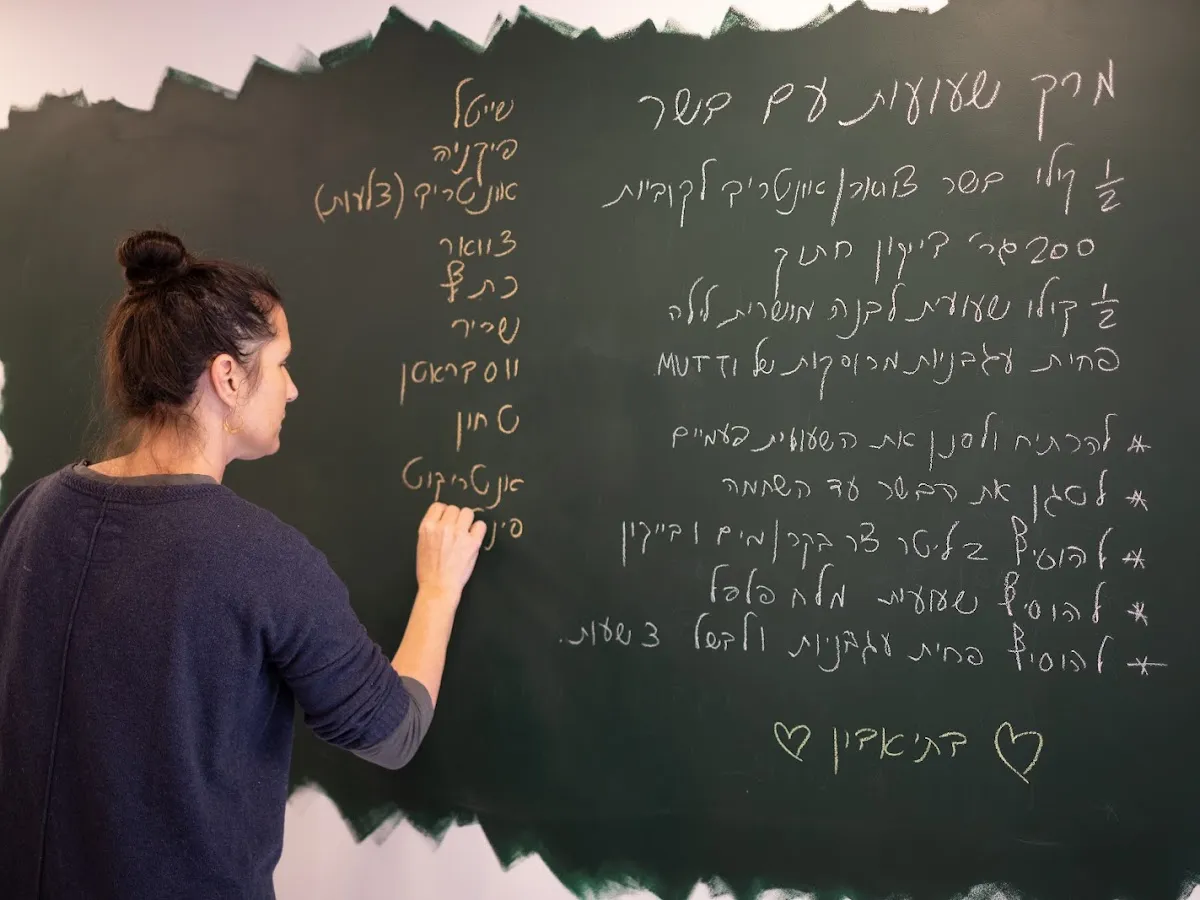 מרק שעועית עם בשר
½ קילו בשר צוואר/אוונטריב לקוביות
200 גר׳ בייקון חתוך
½ קילו שעועית לבנה מושרית לילה
פחית עגבניות מרוסקות של MUTTI
* להרתיח ולסנן את השעועית פעמיים
* לטגן את הבשר עד השחמה
* להוסיף 2 ליטר ציר בקר/מים ובייקון
* להוסיף שעועית מלח פלפל
* להוסיף פחית עגבניות ולבשל 3 שעות.
♡ בתיאבון ♡
שייטל
פיקניה
אוונטריב (צלעות)
צוואר
כתף
שריר
ווסבראטן
טחון
אנטריקוט